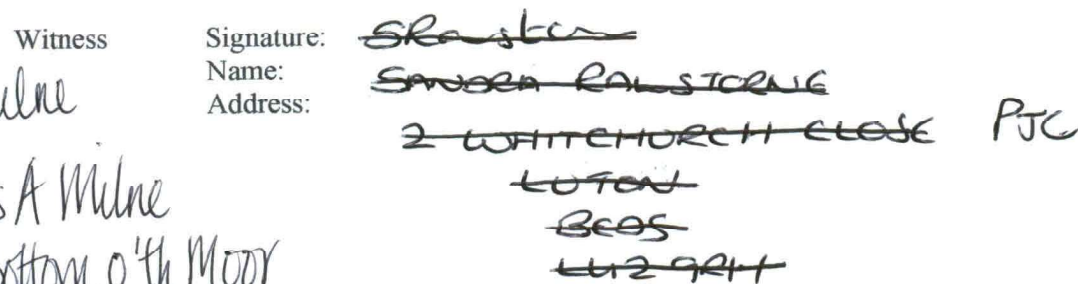 Witness Signature:
Name: SANDRA
Address: 2 WHITCHURCH CLOSE PJC
LUTON
BEDS
LU2 9RH
Milne
A Milne
Bottom o'th Moor